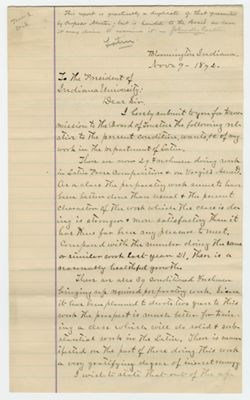 This report is practically a duplicate of that presented
by Professor            ; but is handed to the Board as
it may desire to examine it
Latin
Bloomington Indiana,
Nov. 9 - 1892.
To the President of
Indiana University;
Dear Sir,
I hereby submit to you for trans
mission to the Board of Trustees the following rela
tive to the present condition, wants, &c of my
work in the Department of Latin.
There are now 29 Freshmen doing work
in Latin Prose Composition + on Virgil's Aeneid.
As a class the preparatory work seems to have
been better done than usual + the present
character of the work which the class is do-
ing is stronger + more satisfactory than it
has thus far been my pleasure to meet.
Compared with the number doing the same
or similar work last year 21, there is a
seemingly healthful growth.
There are also 30 conditioned Freshmen
bringing up required preparatory work. Since
it has been planned to devote five years to this
work the prospect is much better for train-
ing a class which will do solid + sub-
stantial work in the Latin. There is mani-
fested on the part of those doing this work
a very gratifying degree of interest + energy.
I wish to state that out of the